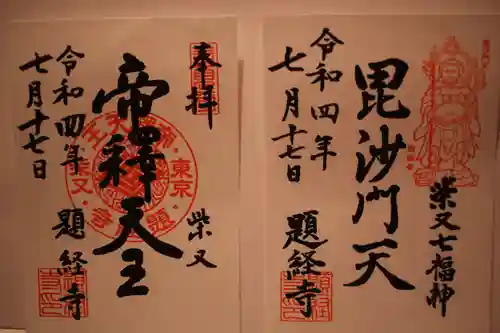 奉拝
柴又
帝釋天王
題経寺
令和四年
七月十七日
柴又七福神
毘沙門天
題経寺
令和四年
七月十七日
東京
柴又